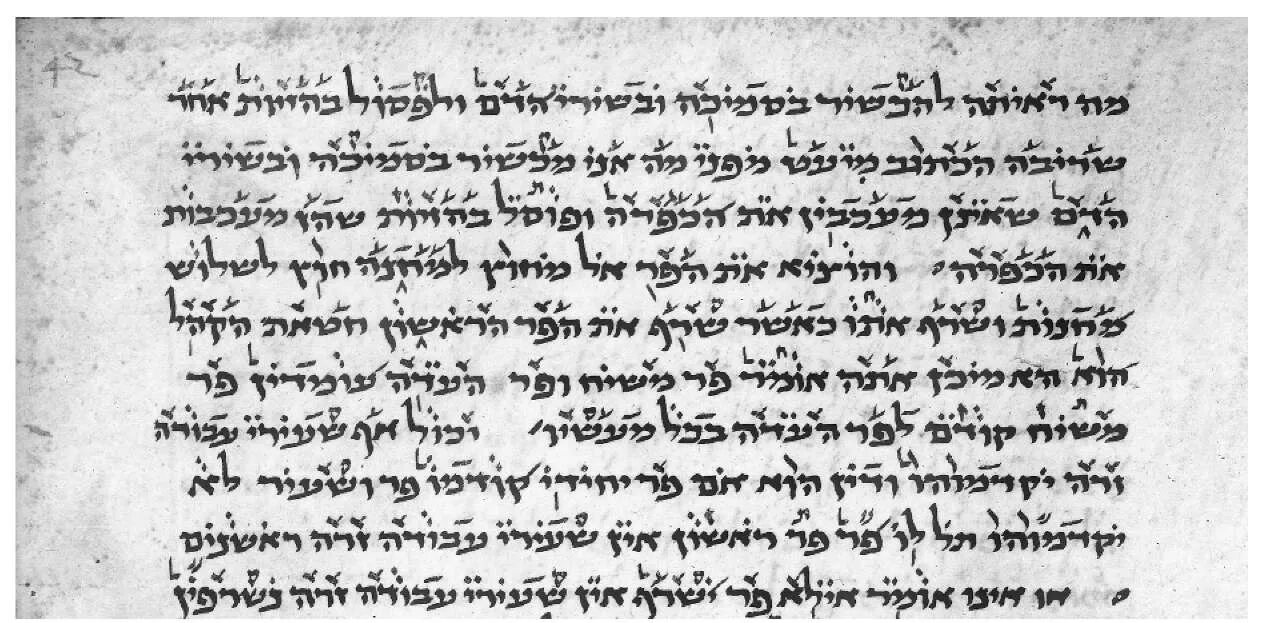 42
מה ראיתה להכשיר בסמיכה ובשירי הדם ולפסול בהזיות אחר
שריבה הכתוב מיעט מפני מה אני מכשיר בסמיכה ובשירי
הדם שאינן מעכבין את הכפרה ופוסל בהזיות שהן מעכבות
את הכפרה · והוציא את הפר אל מחוץ למחנה חוץ לשלוש
מחנות ושרף אתו כאשר שרף את הפר הראשון חטאת הקהל
הוא הא מיכן אתה אומר פר משיח ופר העדה עומדין פר
משיח קודם לפר העדה בכל מעשיו · יכול אף שעירי עבודה
זרה יקדמוהו ודין הוא אם פר יחידי קודמו פר ושעיר לא
יקדמוהו תל לו פר פר ראשון אין שעירי עבודה זרה ראשנים
· או אינו אומר אילא פר ישרף אין שעירי עבודה זרה נשרפין